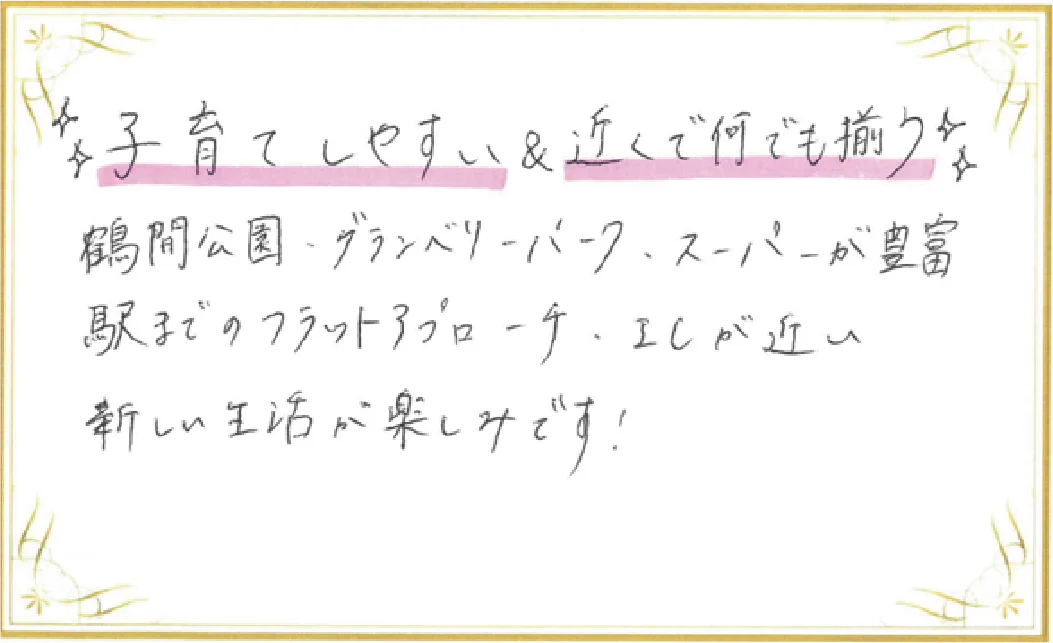 子育てしやすい & 近くで何でも揃う
鶴間公園、グランベリーパーク、スーパーが豊富
駅までのフラットアプローチ、ICが近い
新しい生活が楽しみです!